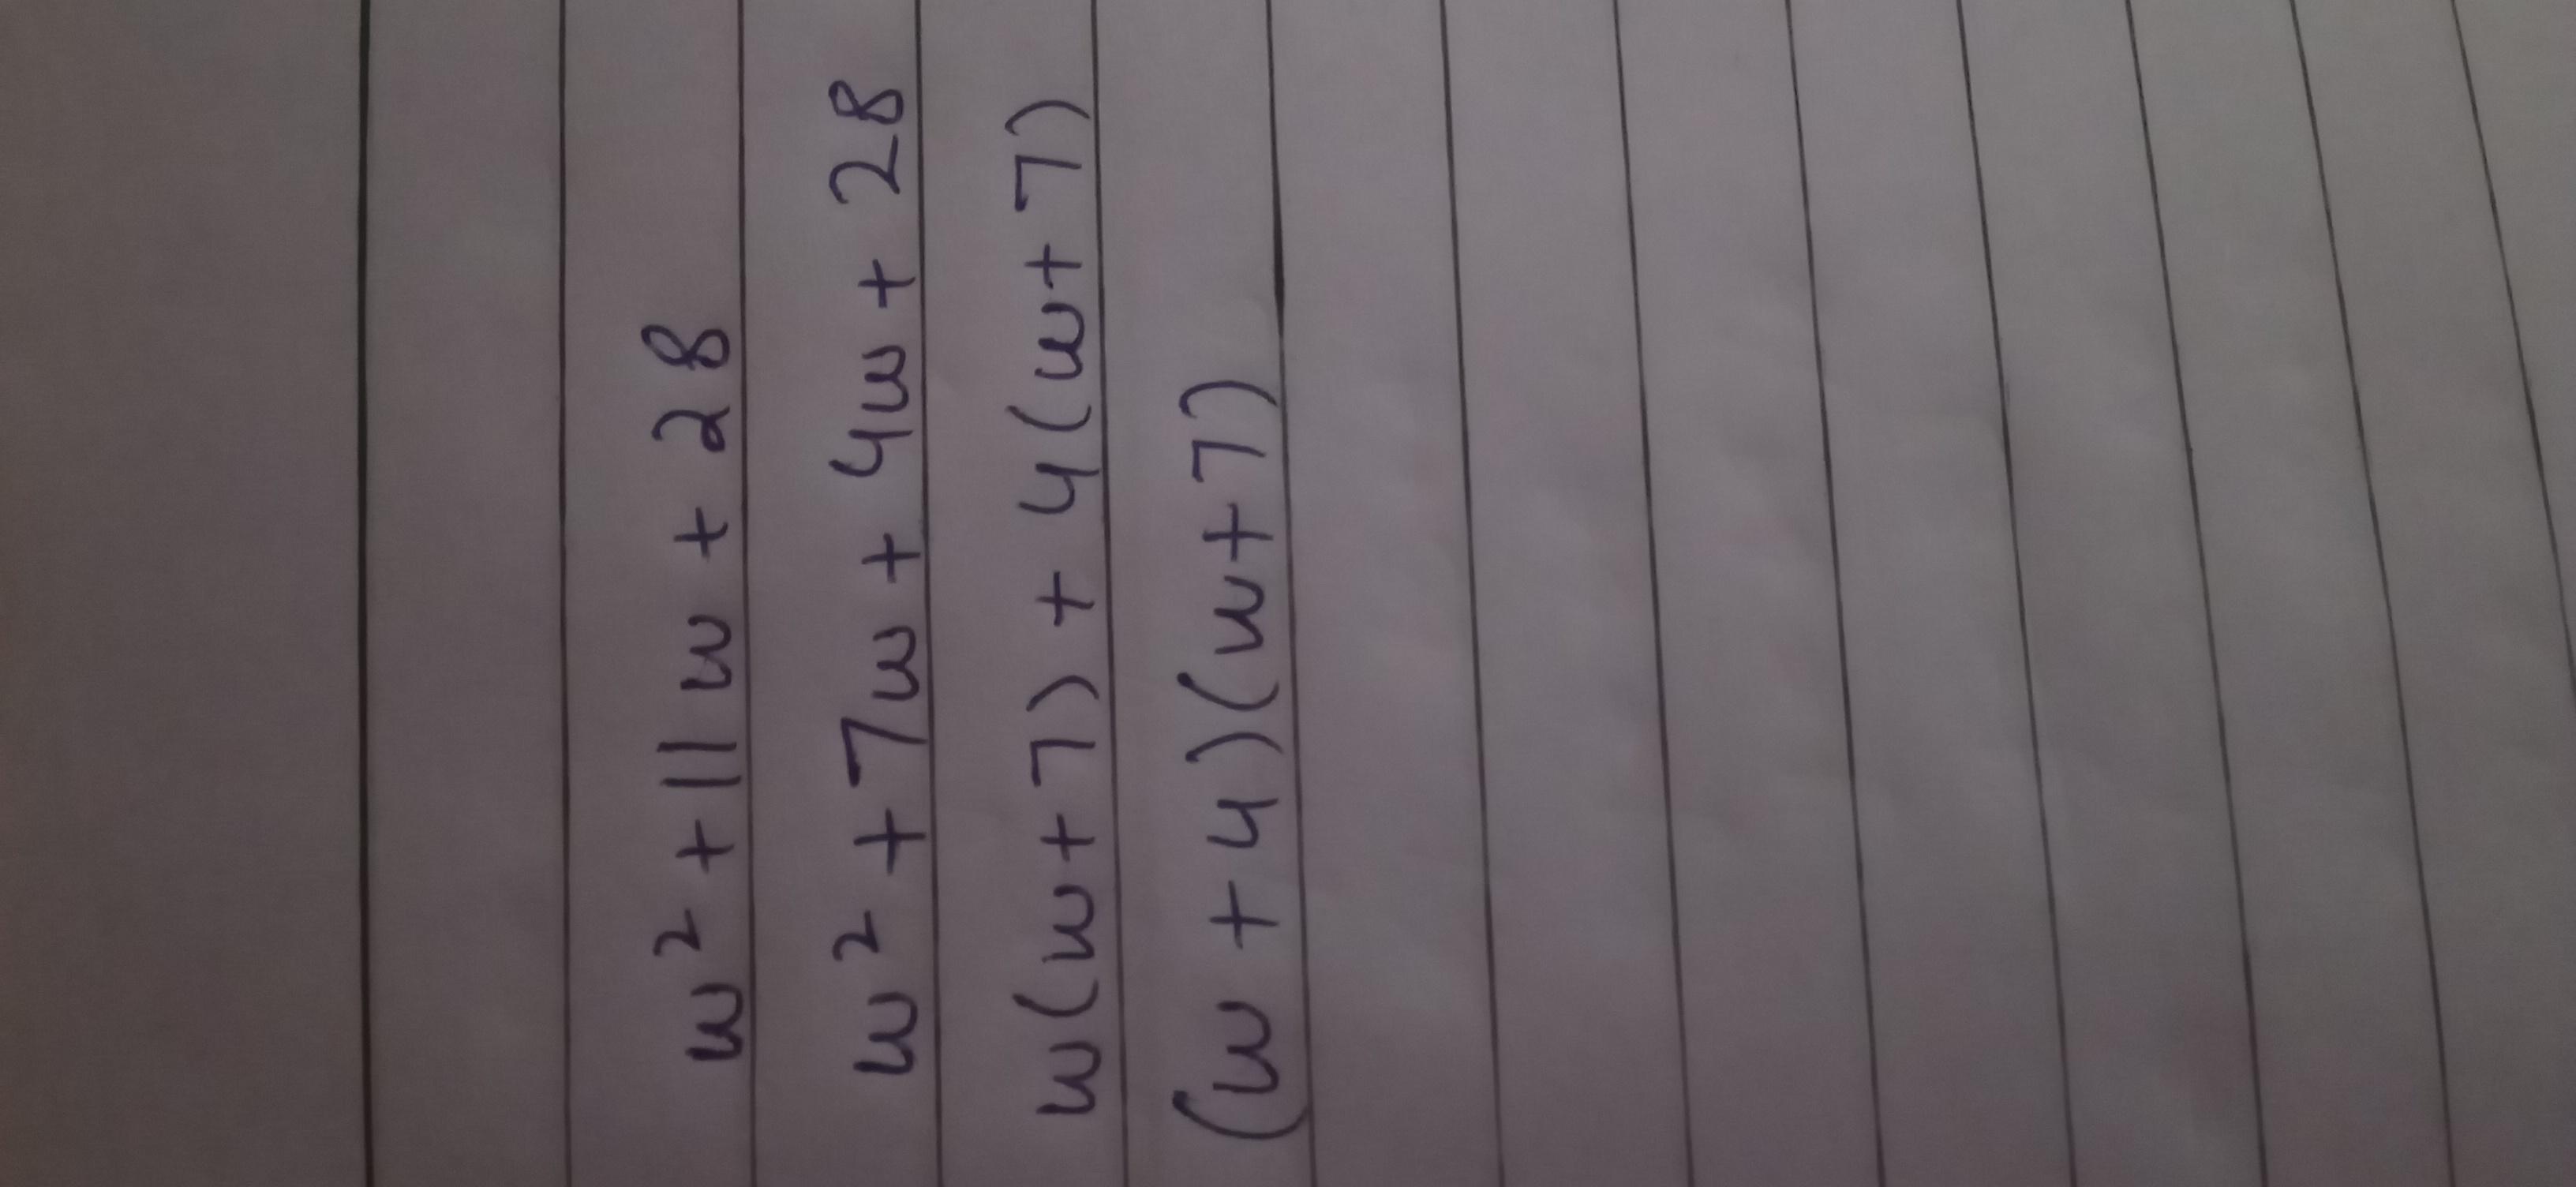 w² + 11w + 28
w² + 7w + 4w + 28
w(w+7) + 4(w+7)
(w + 4)(w+7)